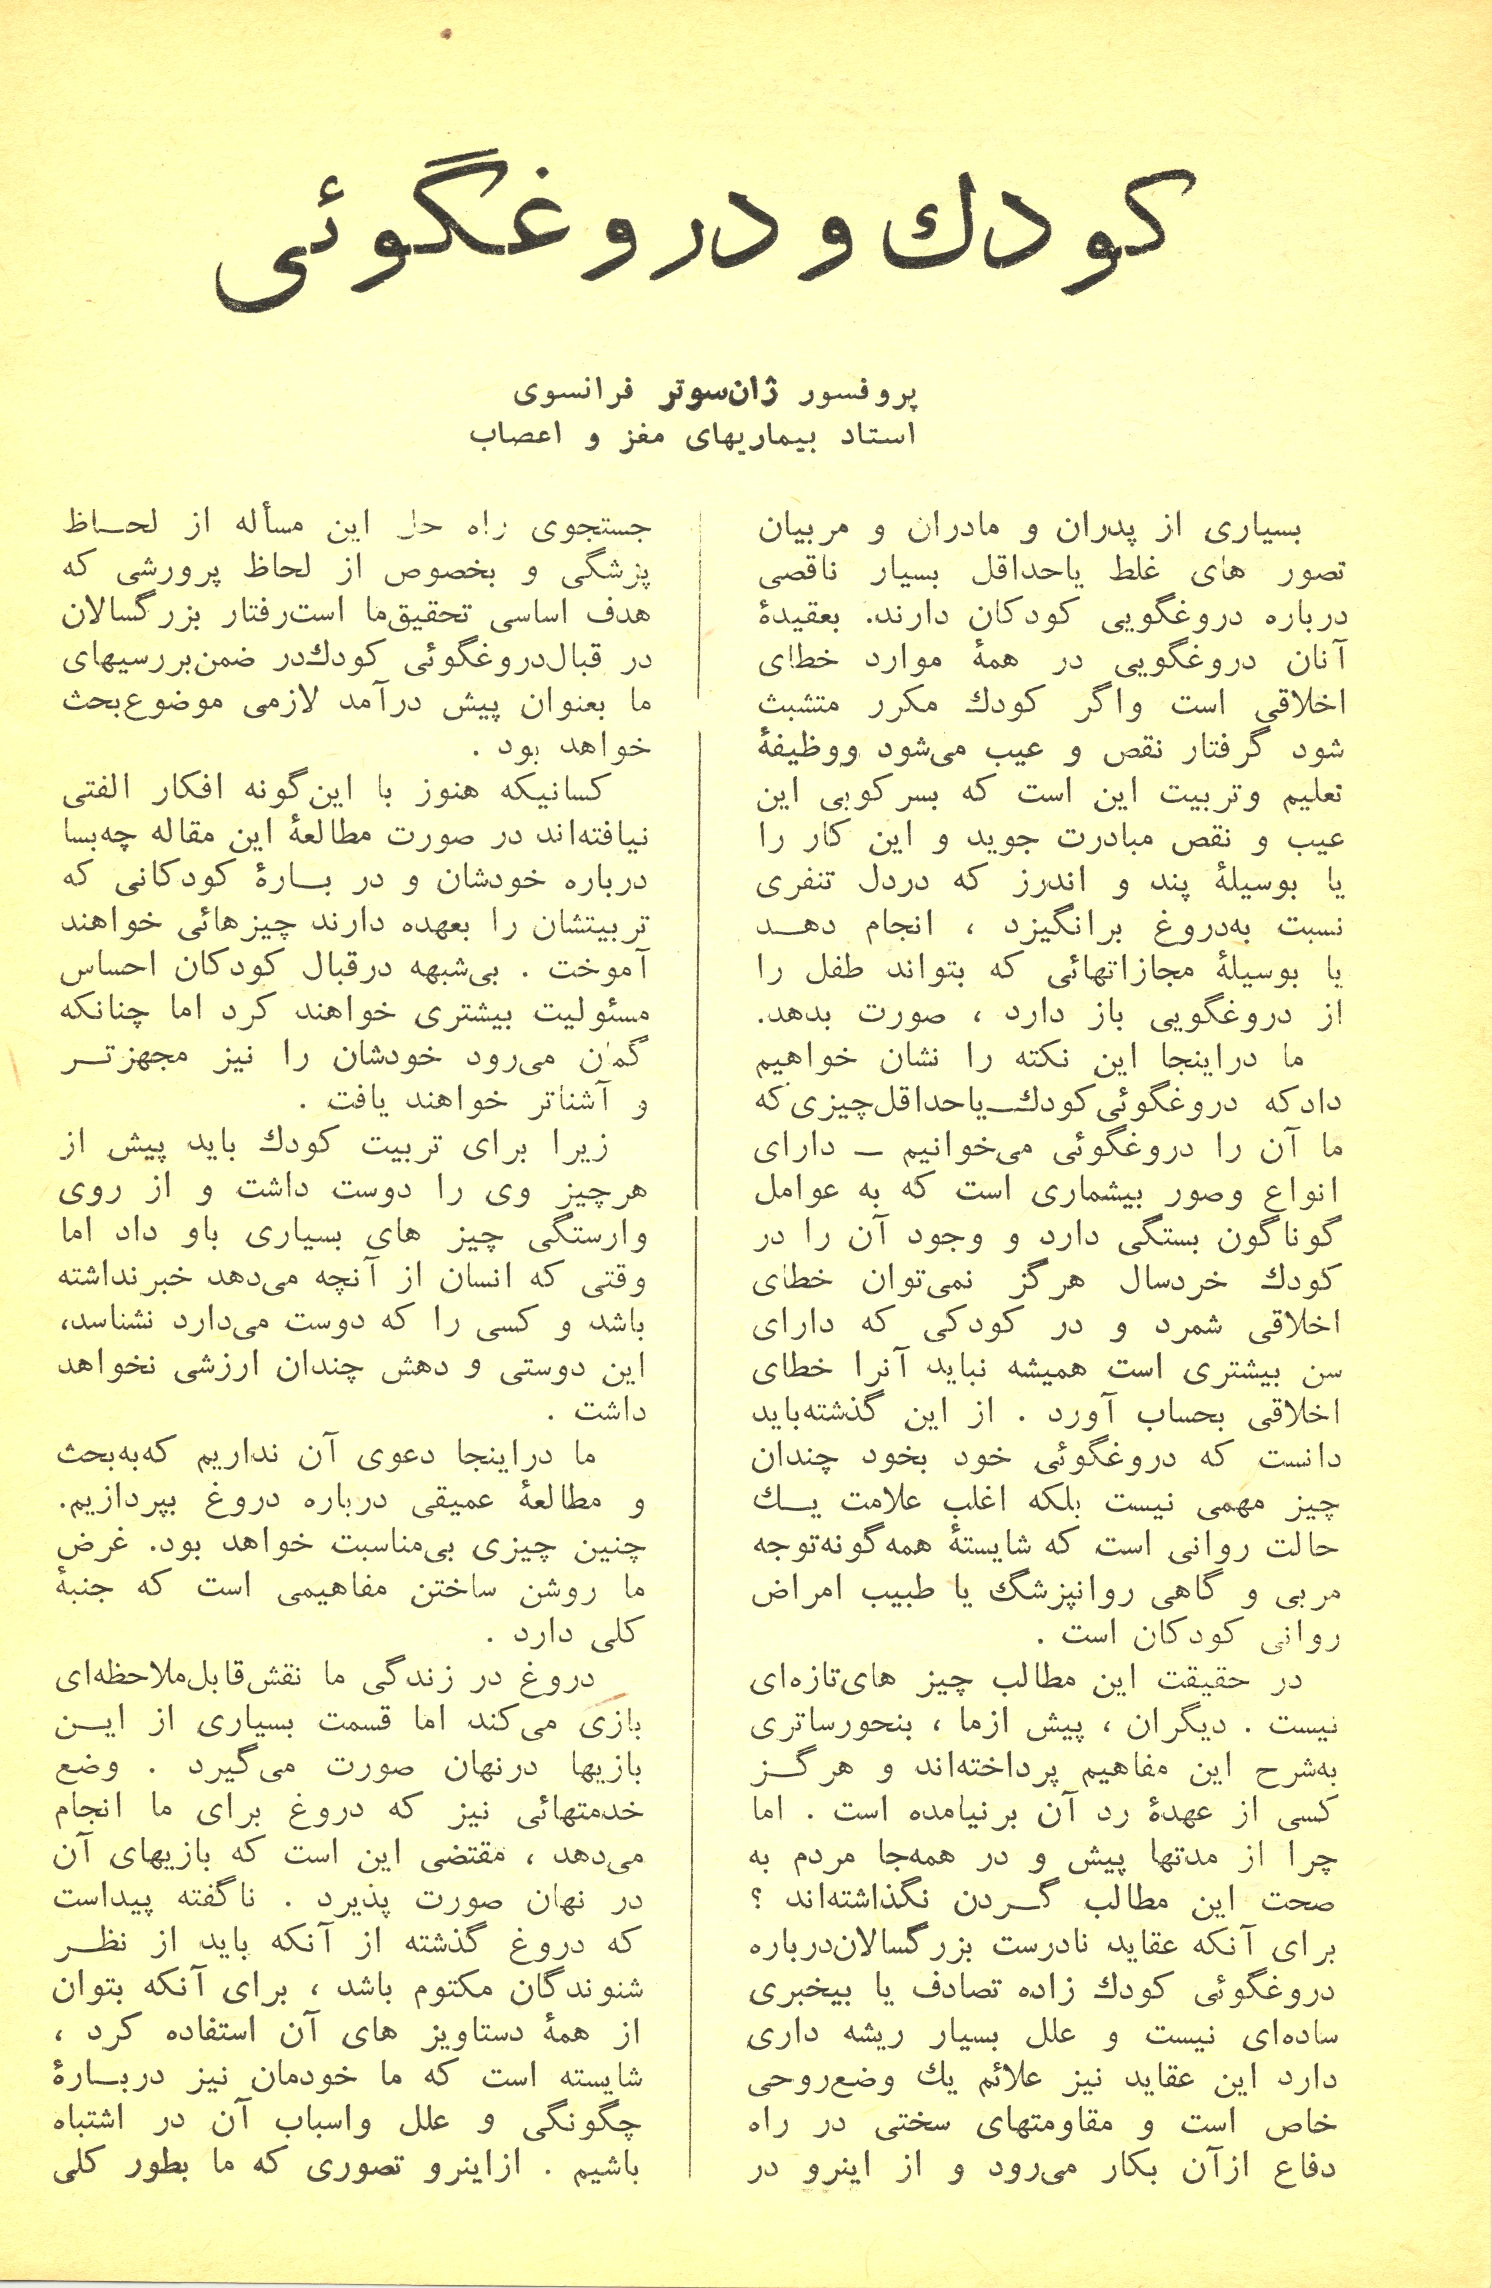 کودك و دروغگوئی
پروفسور ژان‌سوتر فرانسوی
استاد بیماریهای مغز و اعصاب
بسیاری از پدران و مادران و مربیان
تصور های غلط یاحداقل بسیار ناقصی
درباره دروغگویی کودکان دارند. بعقیدهٔ
آنان دروغگویی در همهٔ موارد خطای
اخلاقی است واگر کودك مکرر متشبث
شود گرفتار نقص و عیب می‌شود ووظیفهٔ
تعلیم وتربیت این است که بسرکوبی این
عیب و نقص مبادرت جوید و این کار را
یا بوسیلهٔ پند و اندرز که دردل تنفری
نسبت به‌دروغ برانگیزد ، انجام دهــد
یا بوسیلهٔ مجازاتهائی که بتواند طفل را
از دروغگویی باز دارد ، صورت بدهد.
ما دراینجا این نکته را نشان خواهیم
دادکه دروغگوئی‌کودك‌ــ‌یاحداقل‌چیزی‌که
ما آن را دروغگوئی می‌خوانیم ــ دارای
انواع وصور بیشماری است که به عوامل
گوناگون بستگی دارد و وجود آن را در
کودك خردسال هرگز نمی‌توان خطای
اخلاقی شمرد و در کودکی که دارای
سن بیشتری است همیشه نباید آنرا خطای
اخلاقی بحساب آورد . از این گذشته‌باید
دانست که دروغگوئی خود بخود چندان
چیز مهمی نیست بلکه اغلب علامت یــك
حالت روانی است که شایستهٔ همه‌گونه‌توجه
مربی و گاهی روانپزشگ یا طبیب امراض
روانی کودکان است .
در حقیقت این مطالب چیز های‌تازه‌ای
نیست . دیگران ، پیش ازما ، بنحورساتری
به‌شرح این مفاهیم پرداخته‌اند و هرگــز
کسی از عهدهٔ رد آن برنیامده است . اما
چرا از مدتها پیش و در همه‌جا مردم به
صحت این مطالب گــردن نگذاشته‌اند ؟
برای آنکه عقاید نادرست بزرگسالان‌درباره
دروغگوئی کودك زاده تصادف یا بیخبری
ساده‌ای نیست و علل بسیار ریشه داری
دارد این عقاید نیز علائم یك وضع‌روحی
خاص است و مقاومتهای سختی در راه
دفاع ازآن بکار می‌رود و از اینرو در
جستجوی راه حل این مسأله از لحــاظ
پزشگی و بخصوص از لحاظ پرورشی که
هدف اساسی تحقیق‌ما است‌رفتار بزرگسالان
در قبال‌دروغگوئی کودك‌در ضمن‌بررسیهای
ما بعنوان پیش درآمد لازمی موضوع‌بحث
خواهد بود .
کسانیکه هنوز با این‌گونه افکار الفتی
نیافته‌اند در صورت مطالعهٔ این مقاله چه‌بسا
درباره خودشان و در بــارهٔ کودکانی که
تربیتشان را بعهده دارند چیزهائی خواهند
آموخت . بی‌شبهه درقبال کودکان احساس
مسئولیت بیشتری خواهند کرد اما چنانکه
گمان می‌رود خودشان را نیز مجهزتــر
و آشناتر خواهند یافت .
زیرا برای تربیت کودك باید پیش از
هرچیز وی را دوست داشت و از روی
وارستگی چیز های بسیاری باو داد اما
وقتی که انسان از آنچه می‌دهد خبرنداشته
باشد و کسی را که دوست می‌دارد نشناسد،
این دوستی و دهش چندان ارزشی نخواهد
داشت .
ما دراینجا دعوی آن نداریم که‌به‌بحث
و مطالعهٔ عمیقی درباره دروغ بپردازیم.
چنین چیزی بی‌مناسبت خواهد بود. غرض
ما روشن ساختن مفاهیمی است که جنبهٔ
کلی دارد .
دروغ در زندگی ما نقش‌قابل‌ملاحظه‌ای
بازی می‌کند اما قسمت بسیاری از ایــن
بازیها درنهان صورت می‌گیرد . وضع
خدمتهائی نیز که دروغ برای ما انجام
می‌دهد ، مقتضی این است که بازیهای آن
در نهان صورت پذیرد . ناگفته پیداست
که دروغ گذشته از آنکه باید از نظــر
شنوندگان مکتوم باشد ، برای آنکه بتوان
از همهٔ دستاویز های آن استفاده کرد ،
شایسته است که ما خودمان نیز دربــارهٔ
چگونگی و علل واسباب آن در اشتباه
باشیم . ازاینرو تصوری که ما بطور کلی